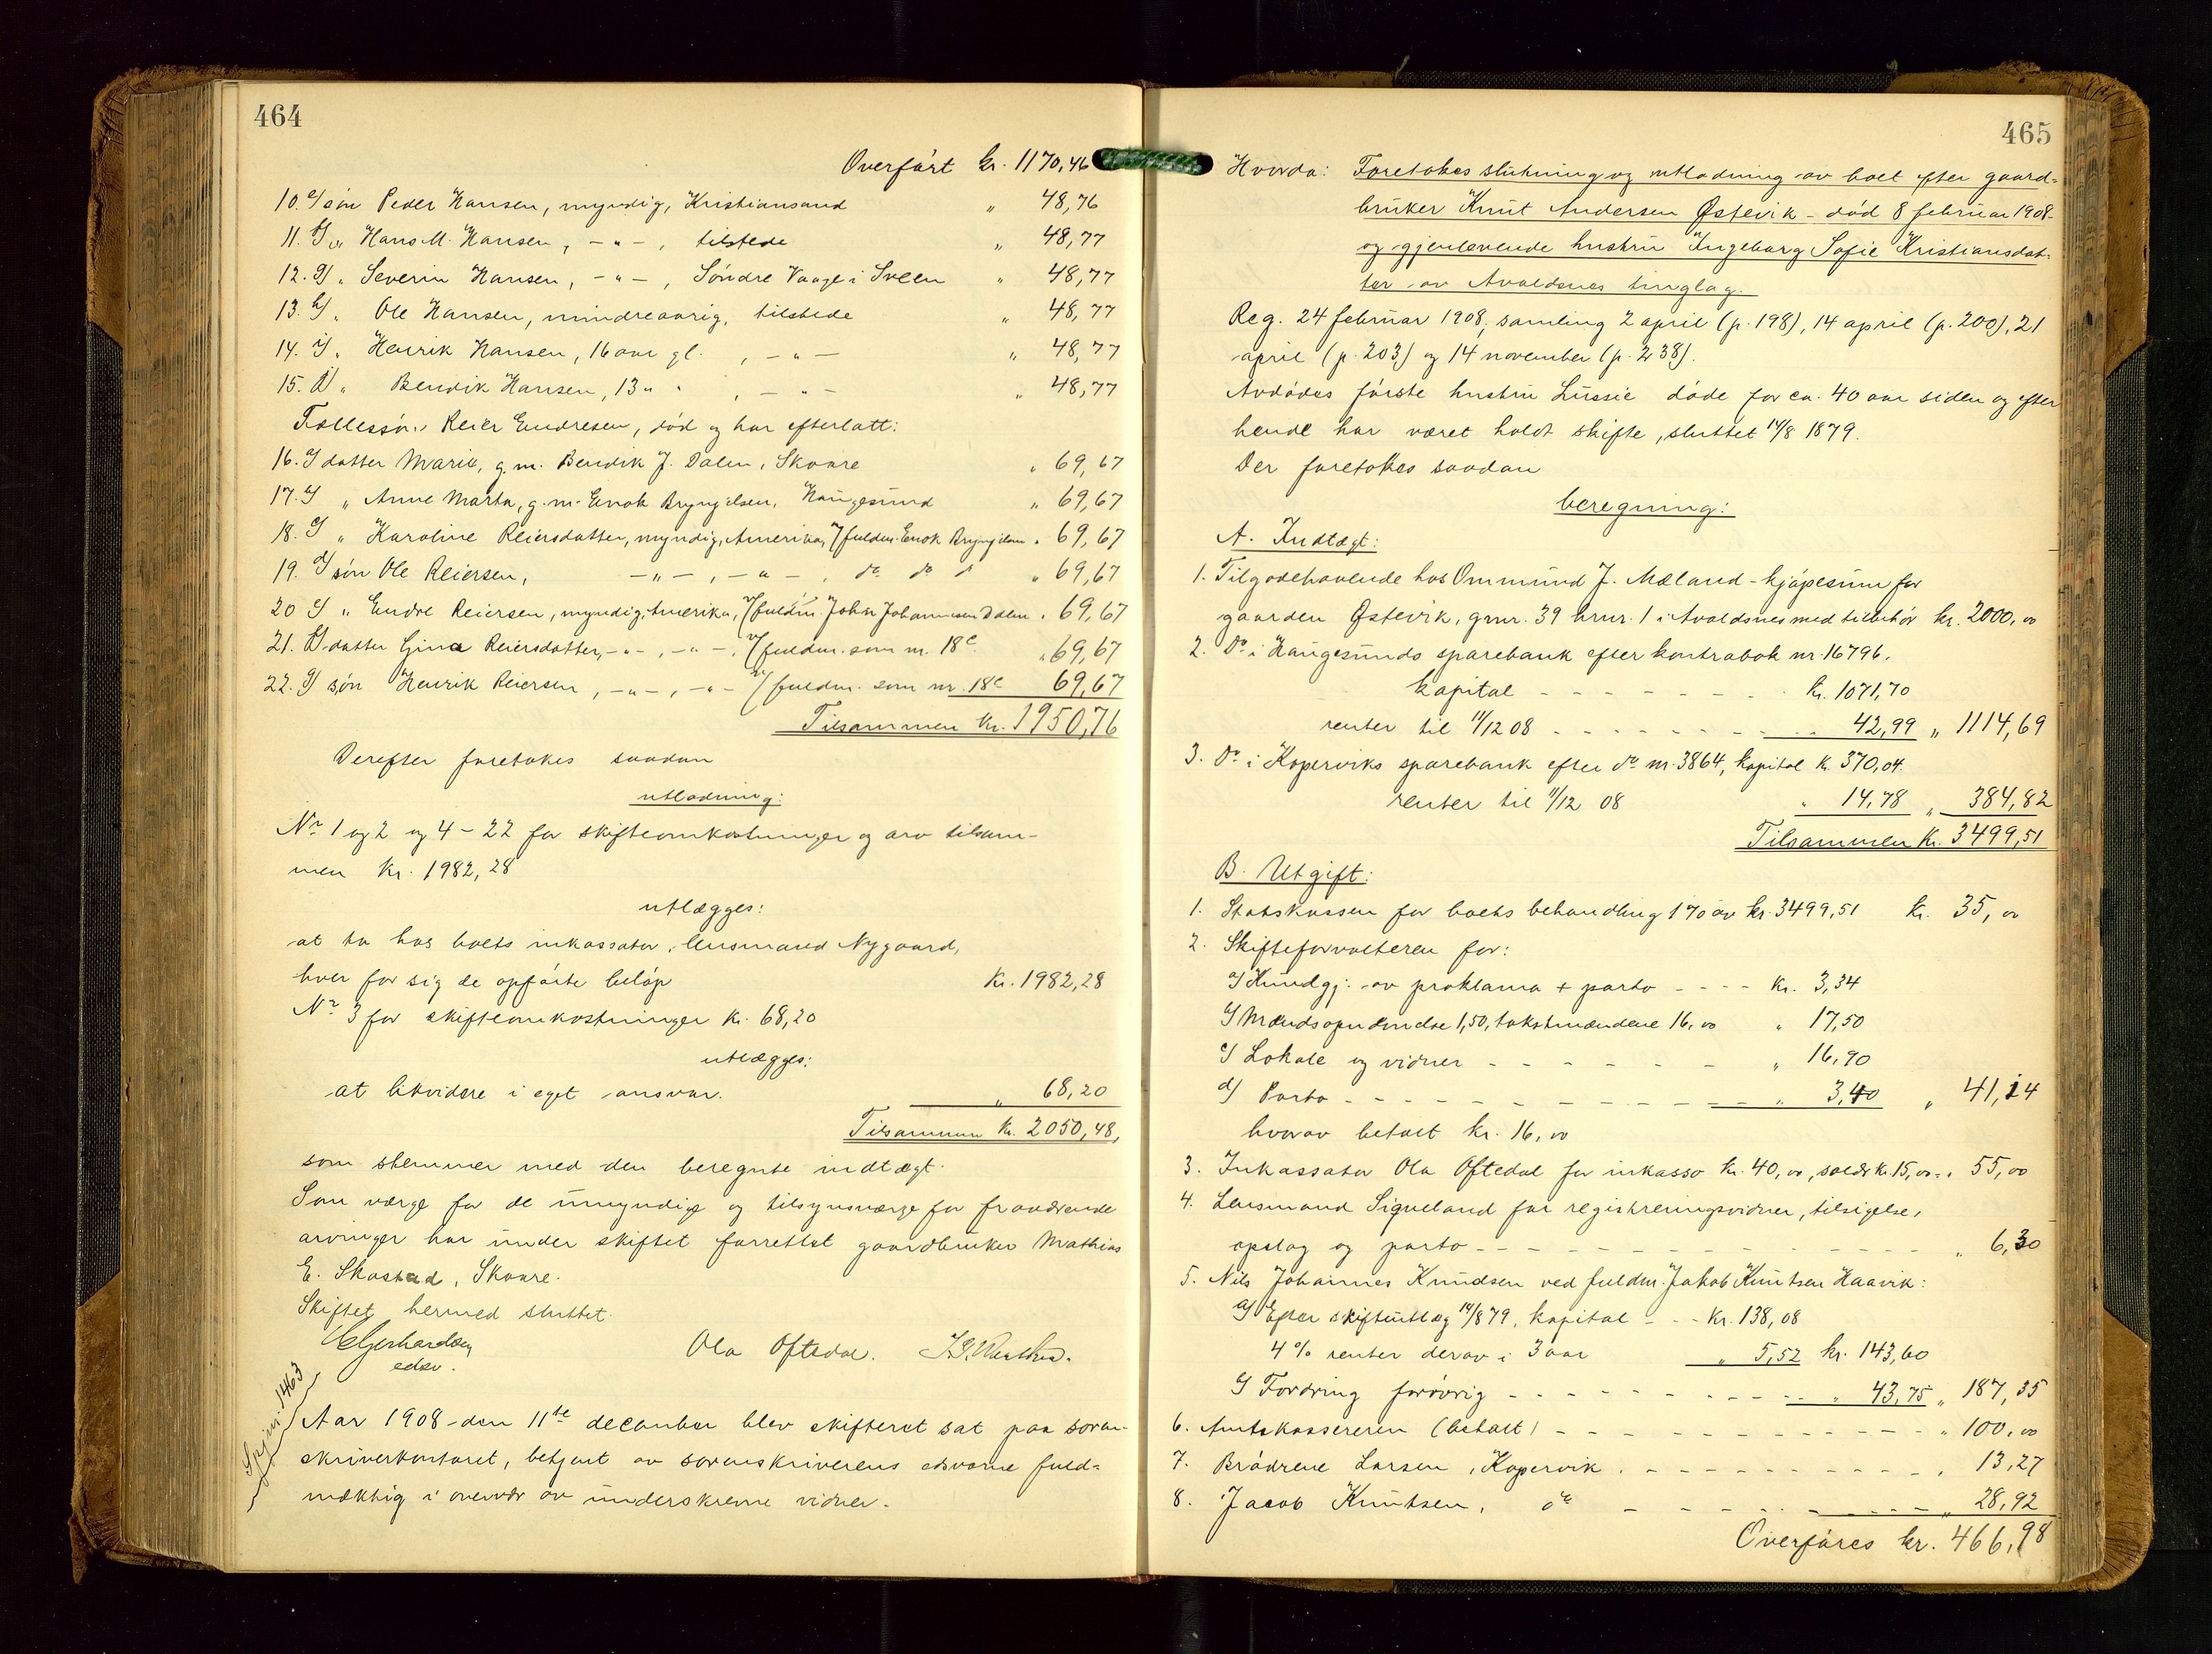 464
Overført kr. 1170,46
10. e/ søn Peder Hansen, myndig, Kristiansand " 48,76
11. f/ " Hans M. Hansen, -"-, tilstede " 48,77
12. g/ " Severin Hansen, -"-, Søndre Vaage i Sveen " 48,77
13. h/ " Ole Hansen, mindreaarig, tilstede " 48,77
14. i/ " Henrik Hansen, 16 aar gl., -"- " 48,77
15. k/ " Bendik Hansen, 13 " " , -"- " 48,77
Fællessøn Reier Endresen, død og har efterlatt:
16. a/ datter Marie, g.m. Bendik J. Dalen, Skaare " 69,67
17. b/ " Anne Marta, g.m. Enok Bryngelsen, Haugesund " 69,67
18. c/ " Karoline Reiersdatter, myndig, Amerika, v/ fuldm. Enok Bryngelsen " 69,67
19. d/ søn Ole Reiersen, -"-, -"-, do do do " 69,67
20 e/ " Endre Reiersen, myndig, Amerika, v/ fuldm. John Johannesen Dalen " 69,67
21. f/ datter Gina Reiersdatter, -"-, -"-, v/ fuldm. som nr. 18c " 69,67
22. g/ søn Henrik Reiersen, -"-, -"- v/ fuldm. som nr. 18c 69,67
Tilsammen Kr. 1950,76
Derefter foretokes saadan
utlodning:
Nr 1 og 2 og 4 - 22 for skifteomkostninger og arv tilsam-
men kr. 1982,28
utlægges:
at ta hos boets inkassator, lensmand Nygaard,
hver for sig de opførte beløp Kr. 1982,28
Nr 3 for skifteomkostninger kr. 68,20
utlægges:
at likvidere i eget ansvar. " 68,20
Tilsammen Kr. 2050,48,
som stemmer med den beregnte indtægt.
Som værge for de umyndige og tilsynsværge for fraværende
arvinger har under skiftet forrettet gaardbruker Mathias
E. Skastad, Skaare.
Skiftet hermed sluttet.
E Gerhardsen
edsv.
Ola Oftedal.
Spjnr. 1463
Aar 1908 den 11te december blev skifteret sat paa soren-
skriverkontoret, betjent av sorenskriverens edsvorne fuld-
mæktig i overvær av underskrevne vidner.
465
Hvorda: Foretokes slutning og utlodning av boet efter gaard-
bruker Knut Andersen Østevik - død 8 februar 1908 -
og gjenlevende hustru Ingeborg Sofie Kristiansdat-
ter av Avaldsnes tinglag.
Reg. 24 februar 1908, samling 2 april (p. 198), 14 april (p. 200), 21
april (p. 203) og 14 november (p. 238).
Avdødes første hustru Lussie døde for ca. 40 aar siden og efter
hende har været holdt skifte, sluttet 14/8 1879.
Der foretokes saadan
beregning:
A. Indtægt:
1. Tilgodehavende hos Ommund J. Mæland - kjøpesum for
gaarden Østevik, gnr. 39 brnr. 1 i Avaldsnes med tilbehør kr. 2000,00
2. Do i Haugesunds sparebank efter kontrabok nr. 16796,
kapital - - - - - - - - kr. 1071,70
renter til 11/12 08 - - - - - - - - 42,99 " 1114,69
3. Do i Koperviks sparebank efter do nr. 3864, kapital kr. 370,04
renter til 11/12 08 " 14,78 " 384,82
Tilsammen Kr. 3499,51
B. Utgift:
1. Statskassen for boets behandling 1 % av kr. 3499,51 kr. 35,00
2. Skifteforvalteren for:
a/ Kundgj. av proklama + porto - - - - kr. 3,34
b/ Mændsopnævnelse 1,50, takstmændene 16,00 " 17,50
c/ Lokale og vidner - - - - - - - " 16,90
d/ Porto - - - - - - - - - - - - " 3,40 " 41,14
hvorav betalt kr. 16,00
3. Inkassator Ola Oftedal for inkasso kr. 40,00, salær kr. 15,00 = " 55,00
4. Lensmand Sigveland for registreringsvidner, tilsigelse,
opslag og porto - - - - - - - - - - - - - - - " 6,30
5. Nils Johannes Knudsen ved fuldm. Jakob Knutsen Haavik:
a/ Efter skifteutlæg 14/8 79, kapital - - - kr. 138,08
4 % renter derav i 3 aar " 5,52 kr. 143,60
b/ Fordring forøvrig - - - - - - - - - - " 43,75 " 187,35
6. Amtskassereren (betalt) - - - - - - - - - - - - - " 100,00
7. Brødrene Larsen, Kopervik - - - - - - - - - - - " 13,27
8. Jacob Knutsen, do - - - - - - - - - " 28,92
Overføres kr. 466,98